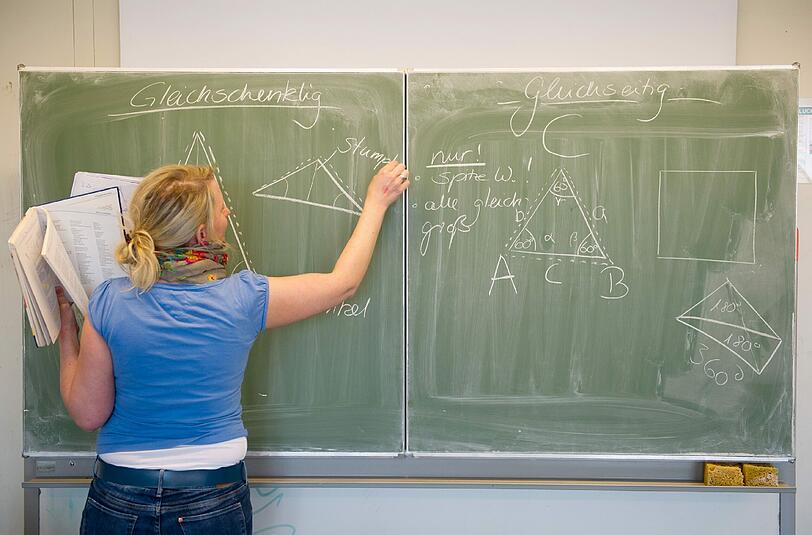 Gleichschenklig
Stump
Gleichseitig
nur!
spitze W.!
alle gleich
groß
C
60°
γ
b
a
60°
α
β
60°
A
C
B
180°
180°
360°